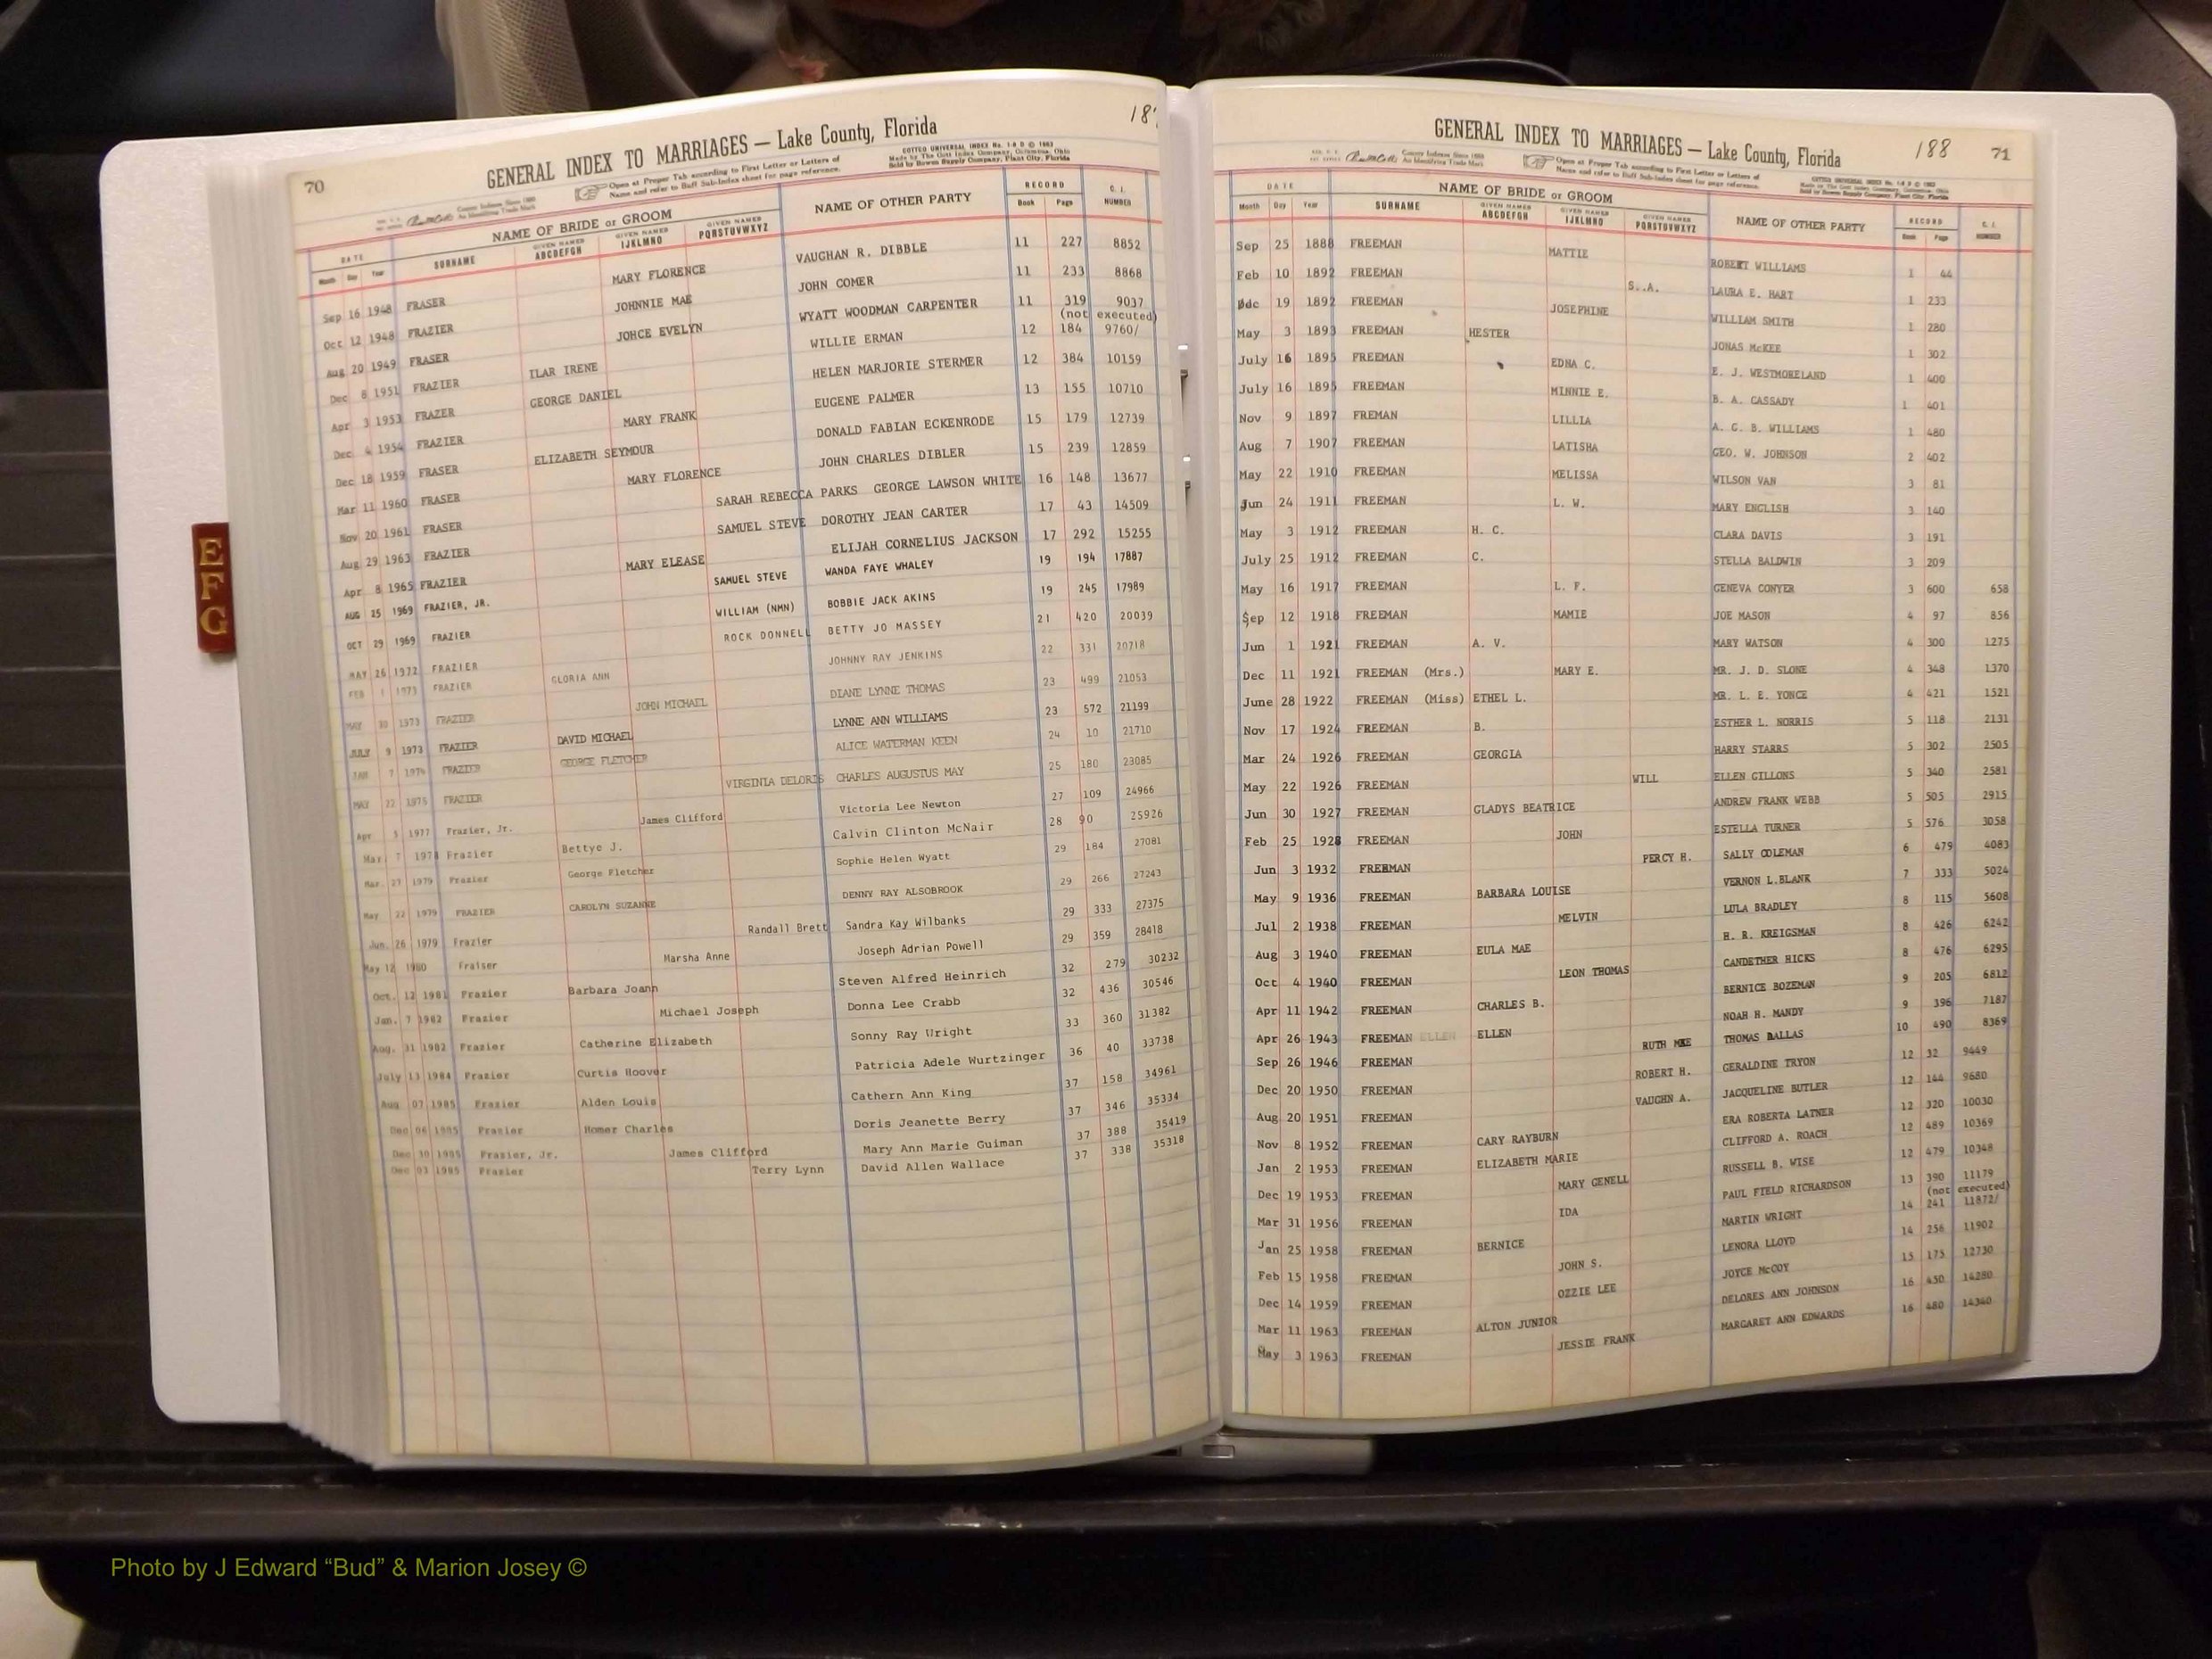 70
187
GENERAL INDEX TO MARRIAGES — Lake County, Florida
COTTCO UNIVERSAL INDEX No. 1-8 B © 1983
Made by The Cott Index Company, Columbus, Ohio
Sold by Bowen Supply Company, Plant City, Florida
County Indexes Since 1888
An Identifying Trade Mark
Open at Proper Tab according to First Letter or Letters of
Name and refer to Buff Sub-Index sheet for page reference.
DATE NAME OF BRIDE or GROOM NAME OF OTHER PARTY RECORD C. I. NUMBER
Month Day Year SURNAME GIVEN NAMES ABCDEFGH GIVEN NAMES IJKLMNO GIVEN NAMES PQRSTUVWXYZ Book Page
Sep 16 1948 FRASER MARY FLORENCE VAUGHAN R. DIBBLE 11 227 8852
Oct 12 1948 FRAZIER JOHNNIE MAE JOHN COMER 11 233 8868
Aug 20 1949 FRASER JOHCE EVELYN WYATT WOODMAN CARPENTER 11 319 9037
(not executed)
Dec 8 1951 FRAZIER ILAR IRENE WILLIE ERMAN 12 184 9760/
Apr 3 1953 FRAZER GEORGE DANIEL HELEN MARJORIE STERMER 12 384 10159
Dec 4 1954 FRAZIER MARY FRANK EUGENE PALMER 13 155 10710
Dec 18 1959 FRASER ELIZABETH SEYMOUR DONALD FABIAN ECKENRODE 15 179 12739
Mar 11 1960 FRASER MARY FLORENCE JOHN CHARLES DIBLER 15 239 12859
Nov 20 1961 FRASER SARAH REBECCA PARKS GEORGE LAWSON WHITE 16 148 13677
Aug 29 1963 FRAZIER SAMUEL STEVE DOROTHY JEAN CARTER 17 43 14509
Apr 8 1965 FRAZIER MARY ELEASE ELIJAH CORNELIUS JACKSON 17 292 15255
AUG 25 1969 FRAZIER, JR. SAMUEL STEVE WANDA FAYE WHALEY 19 194 17887
OCT 29 1969 FRAZIER WILLIAM (NMN) BOBBIE JACK AKINS 19 245 17989
MAY 26 1972 FRAZIER ROCK DONNELL BETTY JO MASSEY 21 420 20039
FEB 1 1973 FRAZIER GLORIA ANN JOHNNY RAY JENKINS 22 331 20718
MAY 30 1973 FRAZIER JOHN MICHAEL DIANE LYNNE THOMAS 23 499 21053
JULY 9 1973 FRAZIER DAVID MICHAEL LYNNE ANN WILLIAMS 23 572 21199
JAN 7 1974 FRAZIER GEORGE FLETCHER ALICE WATERMAN KEEN 24 10 21710
MAY 22 1975 FRAZIER VIRGINIA DELORIS CHARLES AUGUSTUS MAY 25 180 23085
Apr 5 1977 Frazier, Jr. James Clifford Victoria Lee Newton 27 109 24966
Mar 7 1978 Frazier Bettye J. Calvin Clinton McNair 28 90 25926
Mar. 27 1979 Frazier George Fletcher Sophie Helen Wyatt 29 184 27081
May 22 1979 FRAZIER CAROLYN SUZANNE DENNY RAY ALSOBROOK 29 266 27243
Jun. 26 1979 Frazier Randall Brett Sandra Kay Wilbanks 29 333 27375
May 12 1980 Fraiser Marsha Anne Joseph Adrian Powell 29 359 28418
Oct. 12 1981 Frazier Barbara Joann Steven Alfred Heinrich 32 279 30232
Jan. 7 1982 Frazier Michael Joseph Donna Lee Crabb 32 436 30546
Aug. 31 1982 Frazier Catherine Elizabeth Sonny Ray Wright 33 360 31382
July 13 1984 Frazier Curtis Hoover Patricia Adele Wurtzinger 36 40 33738
Aug 07 1985 Frazier Alden Louis Cathern Ann King 37 158 34961
Dec 06 1985 Frazier Homer Charles Doris Jeanette Berry 37 346 35334
Dec 30 1985 Frazier, Jr. James Clifford Mary Ann Marie Guiman 37 388 35419
Dec 03 1985 Frazier Terry Lynn David Allen Wallace 37 338 35318
GENERAL INDEX TO MARRIAGES — Lake County, Florida
188 71
County Indexes Since 1888
An Identifying Trade Mark
Open at Proper Tab according to First Letter or Letters of
Name and refer to Buff Sub-Index sheet for page reference.
COTTCO UNIVERSAL INDEX No. 1-8 B © 1983
Made by The Cott Index Company, Columbus, Ohio
Sold by Bowen Supply Company, Plant City, Florida
DATE NAME OF BRIDE or GROOM NAME OF OTHER PARTY RECORD C. I. NUMBER
Month Day Year SURNAME GIVEN NAMES ABCDEFGH GIVEN NAMES IJKLMNO GIVEN NAMES PQRSTUVWXYZ Book Page
Sep 25 1888 FREEMAN MATTIE ROBERT WILLIAMS 1 44
Feb 10 1892 FREEMAN S. A. LAURA E. HART 1 233
Ddc 19 1892 FREEMAN JOSEPHINE WILLIAM SMITH 1 280
May 3 1893 FREEMAN HESTER JONAS McKEE 1 302
July 16 1895 FREEMAN EDNA C. E. J. WESTMORELAND 1 400
July 16 1895 FREEMAN MINNIE E. B. A. CASSADY 1 401
Nov 9 1897 FREMAN LILLIA A. C. B. WILLIAMS 1 480
Aug 7 1907 FREEMAN LATISHA GEO. W. JOHNSON 2 402
May 22 1910 FREEMAN MELISSA WILSON VAN 3 81
Jun 24 1911 FREEMAN L. W. MARY ENGLISH 3 140
May 3 1912 FREEMAN H. C. CLARA DAVIS 3 191
July 25 1912 FREEMAN C. STELLA BALDWIN 3 209
May 16 1917 FREEMAN L. F. GENEVA CONYER 3 600 658
Sep 12 1918 FREEMAN MAMIE JOE MASON 4 97 856
Jun 1 1921 FREEMAN A. V. MARY WATSON 4 300 1275
Dec 11 1921 FREEMAN (Mrs.) MARY E. MR. J. D. SLONE 4 348 1370
June 28 1922 FREEMAN (Miss) ETHEL L. MR. L. E. YONCE 4 421 1521
Nov 17 1924 FREEMAN B. ESTHER L. NORRIS 5 118 2131
Mar 24 1926 FREEMAN GEORGIA HARRY STARRS 5 302 2505
May 22 1926 FREEMAN WILL ELLEN GILLONS 5 340 2581
Jun 30 1927 FREEMAN GLADYS BEATRICE ANDREW FRANK WEBB 5 505 2915
Feb 25 1928 FREEMAN JOHN ESTELLA TURNER 5 576 3058
Jun 3 1932 FREEMAN PERCY H. SALLY COLEMAN 6 479 4083
May 9 1936 FREEMAN BARBARA LOUISE VERNON L.BLANK 7 333 5024
Jul 2 1938 FREEMAN MELVIN LULA BRADLEY 8 115 5608
Aug 3 1940 FREEMAN EULA MAE H. R. KREIGSMAN 8 426 6242
Oct 4 1940 FREEMAN LEON THOMAS CANDETHER HICKS 8 476 6295
Apr 11 1942 FREEMAN CHARLES B. BERNICE BOZEMAN 9 205 6812
Apr 26 1943 FREEMAN ELLEN ELLEN NOAH H. MANDY 9 396 7187
Sep 26 1946 FREEMAN RUTH MAE THOMAS DALLAS 10 490 8369
Dec 20 1950 FREEMAN ROBERT H. GERALDINE TRYON 12 32 9449
Aug 20 1951 FREEMAN VAUGHN A. JACQUELINE BUTLER 12 144 9680
Nov 8 1952 FREEMAN CARY RAYBURN ERA ROBERTA LATNER 12 320 10030
Jan 2 1953 FREEMAN ELIZABETH MARIE CLIFFORD A. ROACH 12 489 10369
Dec 19 1953 FREEMAN MARY GENELL RUSSELL B. WISE 12 479 10348
Mar 31 1956 FREEMAN IDA PAUL FIELD RICHARDSON 13 390 11179
(not executed)
Jan 25 1958 FREEMAN BERNICE MARTIN WRIGHT 14 241 11872/
Feb 15 1958 FREEMAN JOHN S. LENORA LLOYD 14 256 11902
Dec 14 1959 FREEMAN OZZIE LEE JOYCE McCOY 15 175 12730
Mar 11 1963 FREEMAN ALTON JUNIOR DELORES ANN JOHNSON 16 430 14280
May 3 1963 FREEMAN JESSIE FRANK MARGARET ANN EDWARDS 16 480 14340
EFG
Photo by J Edward “Bud” & Marion Josey ©